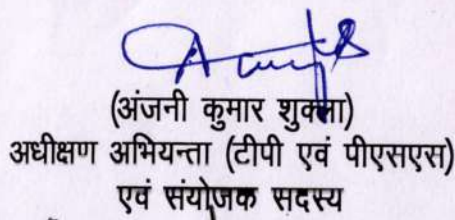 (अंजनी कुमार शुक्ला)
अधीक्षण अभियन्ता (टीपी एवं पीएसएस)
एवं संयोजक सदस्य